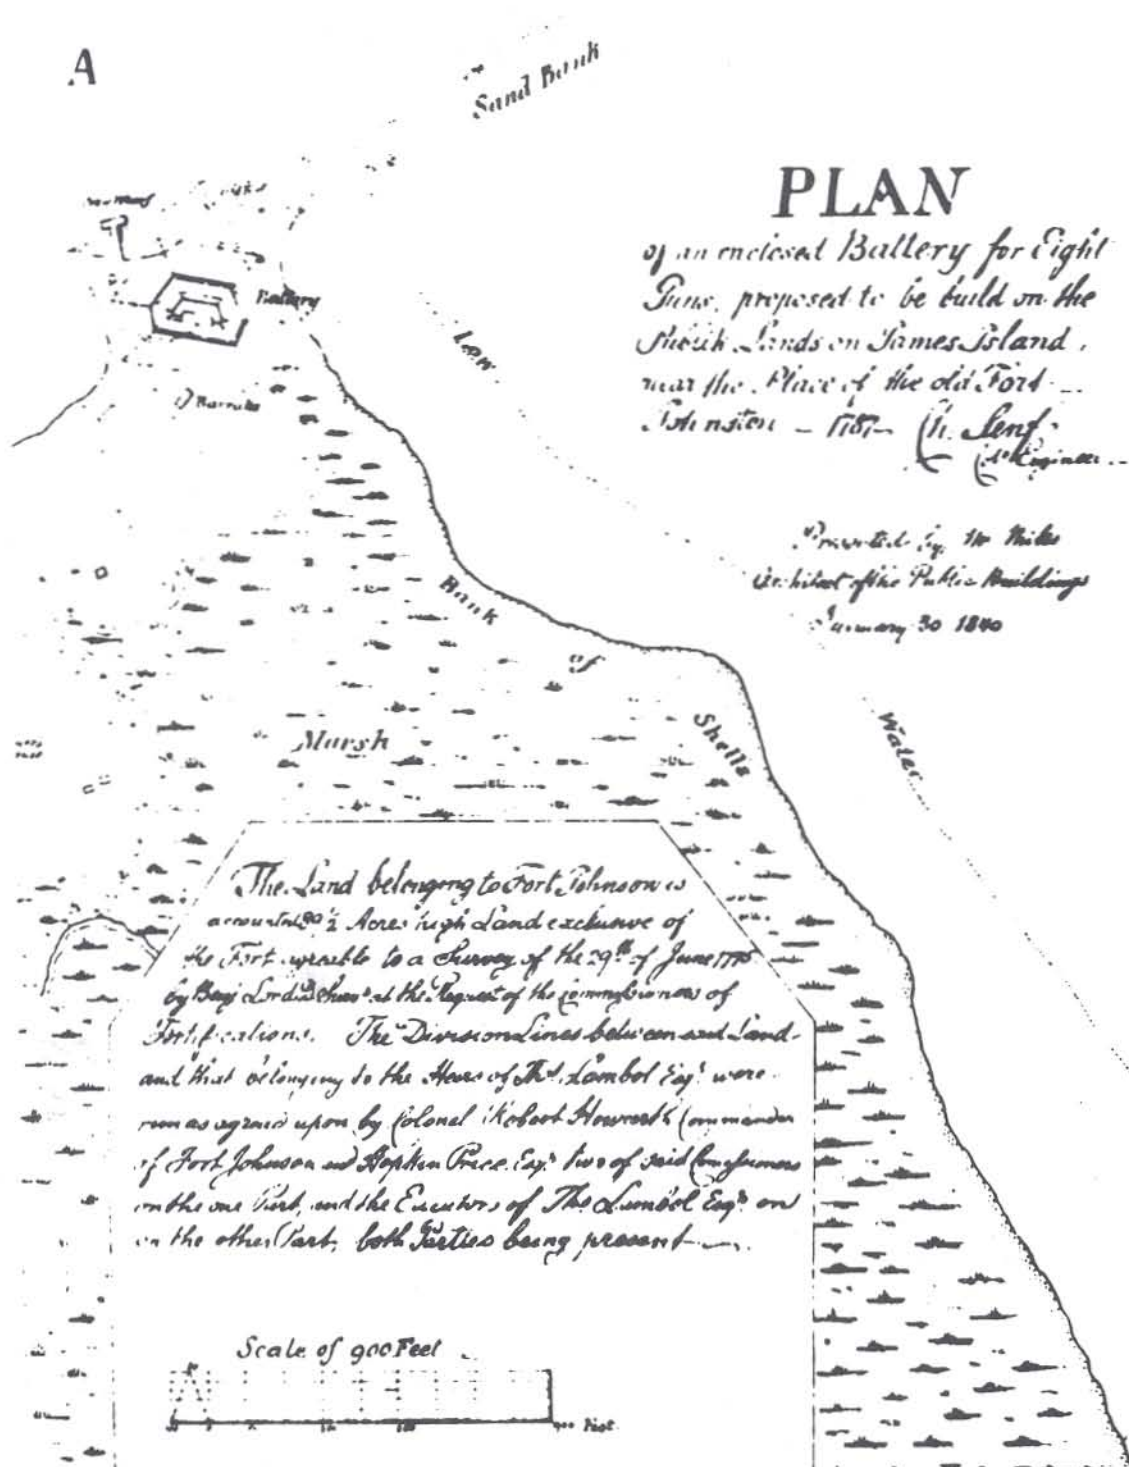 A
Sand Bank
PLAN
of an enclosed Battery for Eight
Guns, proposed to be build on the
Lands on James Island,
near the Place of the old Fort
Johnston – 1787 – Ch. Senf
Engineer
Battery
Barracks
Low
Presented by Mr Mills
Architect of the Public Buildings
January 30 1840
Bank
of
Shells
Water
Marsh
The Land belonging to Fort Johnson is
½ Acres high Land exclusive of
the Fort agreable to a Survey of the 29th of June 1775
by Benj Lord at the Request of the Commissioners of
Fortifications. The Division Lines between said Land
and that belonging to the Heirs of Thos Lambol Esqr were
run as agreed upon by Colonel Robert Howarth Commander
of Fort Johnson and Hopkin Price Esqr two of said Commissioners
on the one Part, and the Executors of Tho Lambol Esqr on
on the other Part, both Parties being present
Scale of 900 Feet
900 Feet